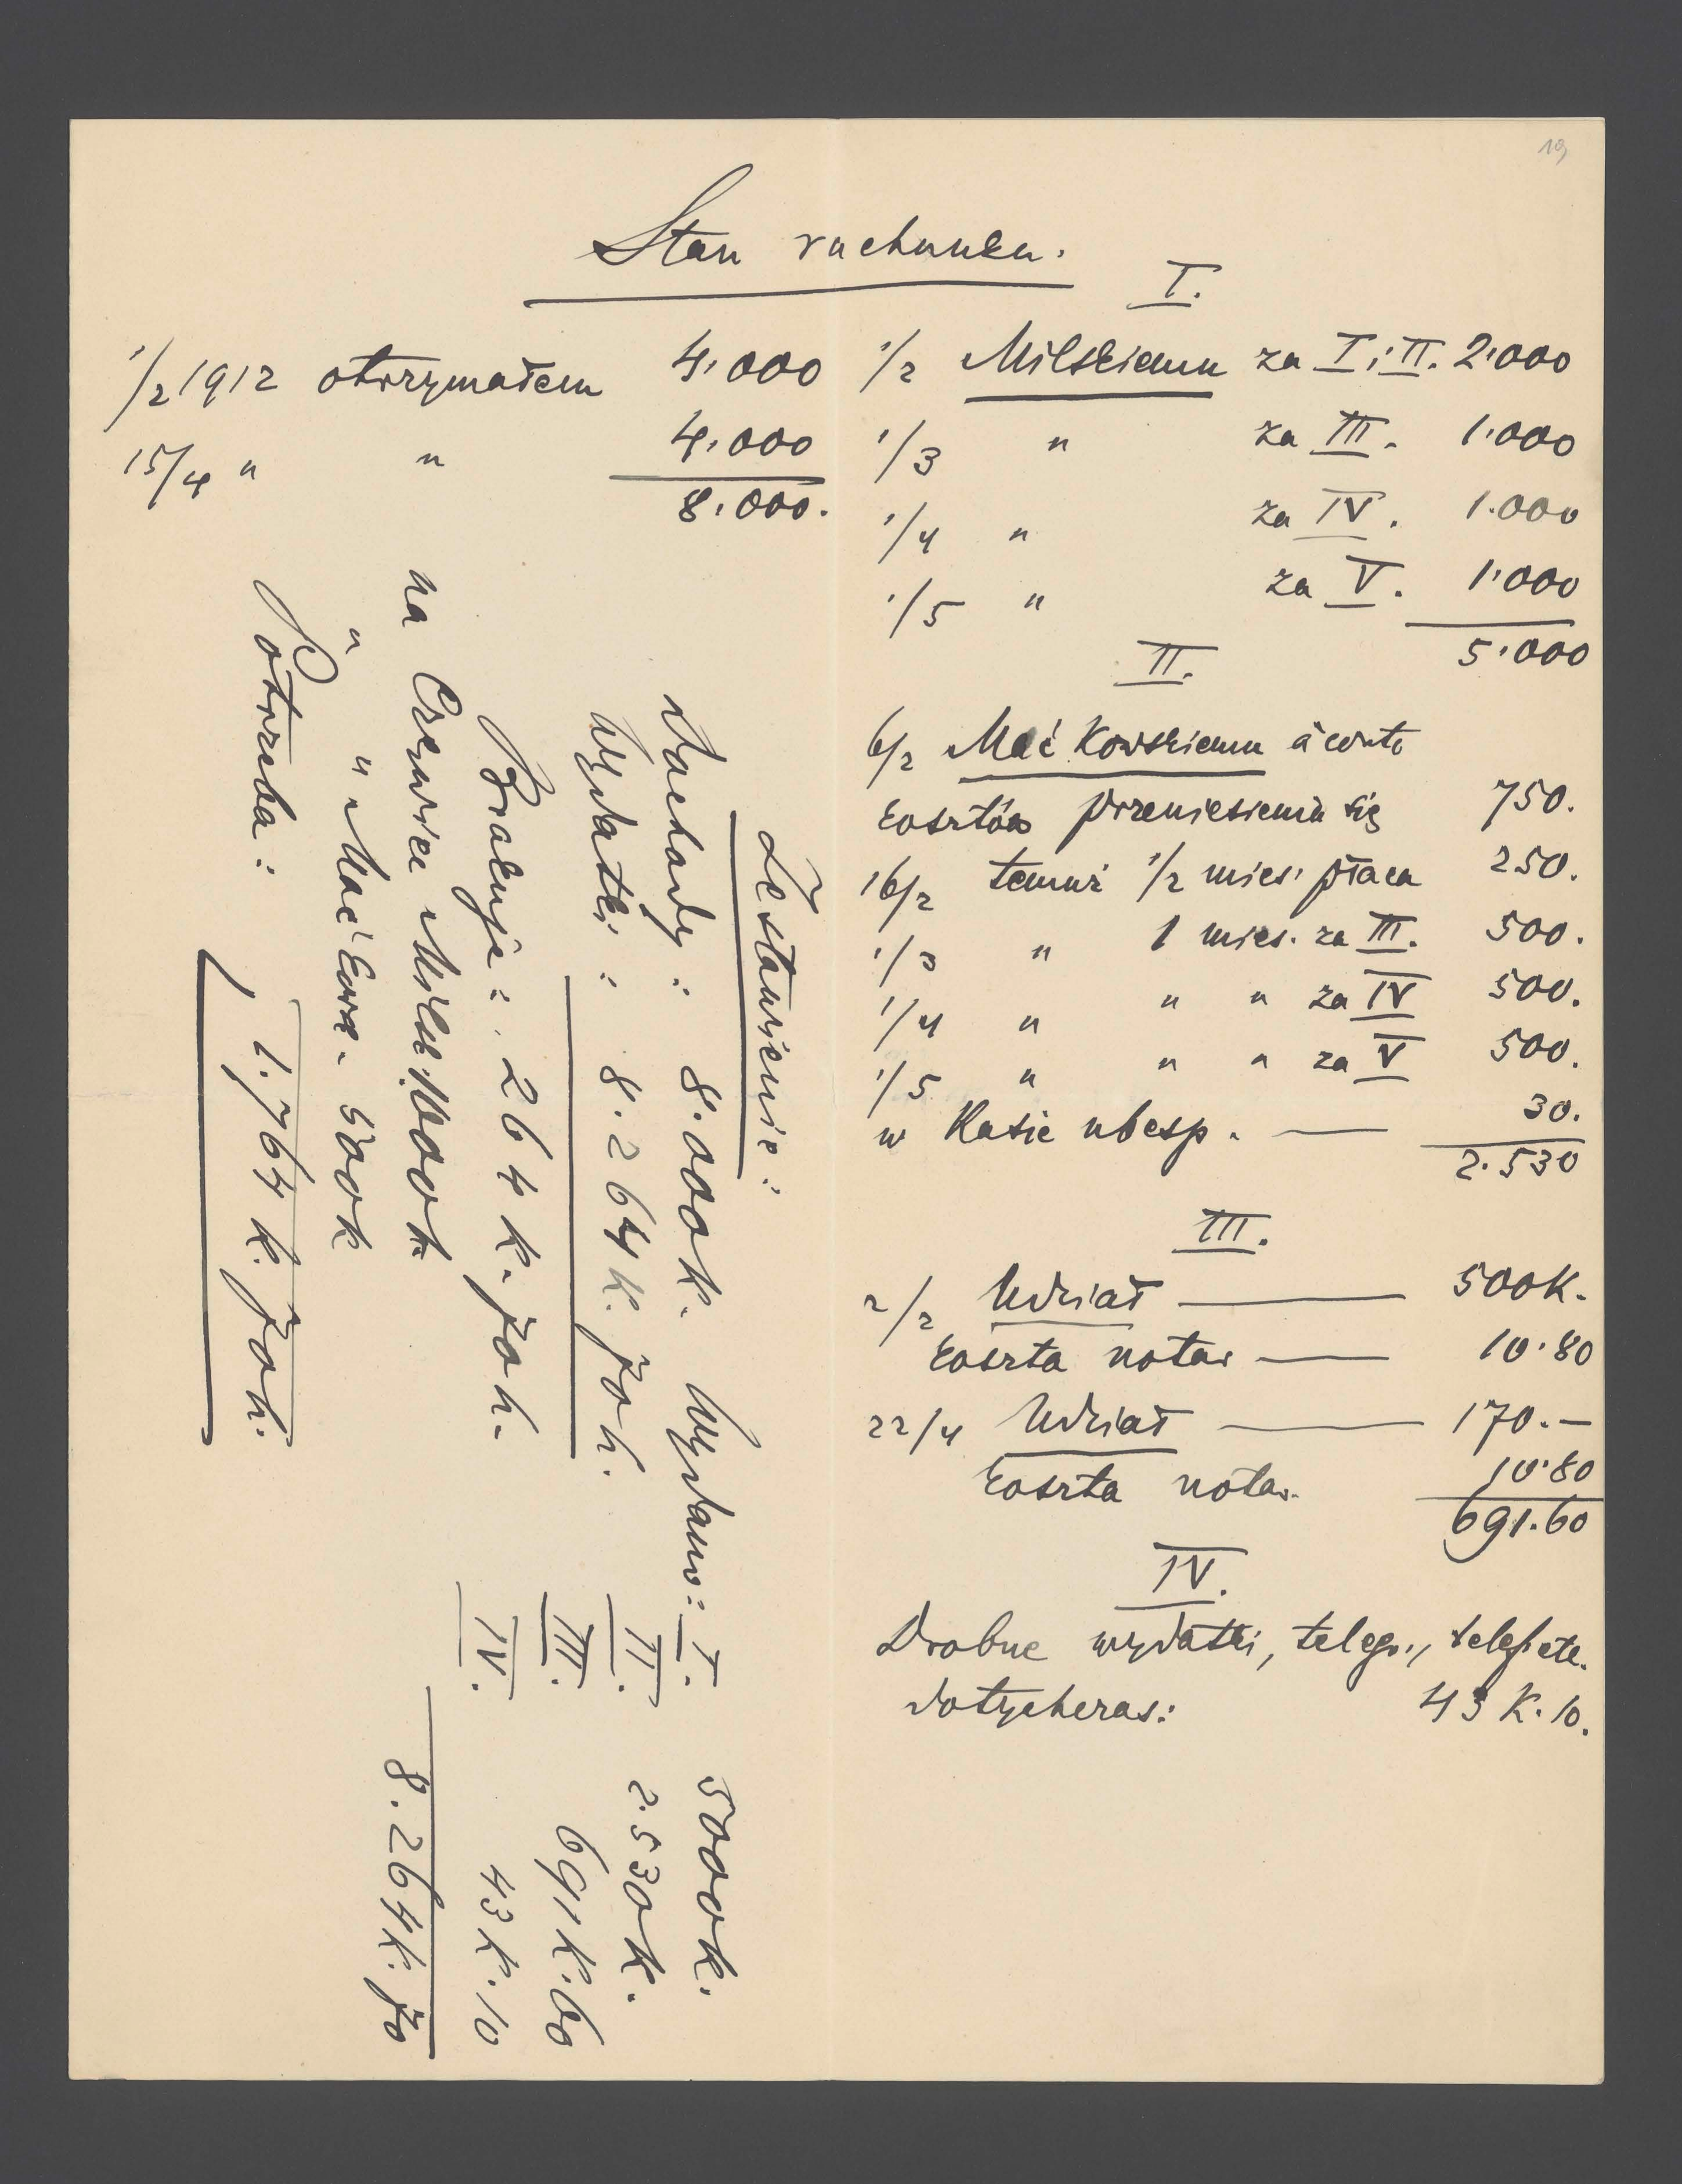 19,
Stan rachunku.
1/2 1912 otrzymałem 4.000
15/4 " " 4.000
8.000.
I.
1/2 Milskiemu za I i II. 2.000
1/3 " za III. 1.000
1/4 " za IV. 1.000
1/5 " za V. 1.000
5.000
II.
6/2 Maćkowskiemu à conto
kosztów przeniesienia się 750.
16/2 temuż 1/2 mies. płaca 250.
1/3 " 1 mies. za III. 500.
1/4 " " " za IV 500.
1/5 " " " za V 500.
w Kasie ubesp. — 30.
2.530
III.
2/2 Udział — 500K.
koszta notar — 10.80
22/4 Udział — 170.—
koszta notar. 10.80
691.60
IV.
Drobne wydatki, telegr., telef. etc.
dotychczas: 43 K. 10.
Zestawienie:
Dochody: 8.000K. Wydano: I. 5000K.
Wydatki: 8.264 K. 70 h. II. 2.530K.
Brakuje: 264 K. 70 h. III. 691K.60
na Czerwiec Milsk. 1000K IV. 43 K. 10
" " Maćkow. 500K 8.264K. 70
Potrzeba: 1.764 K. 70h.